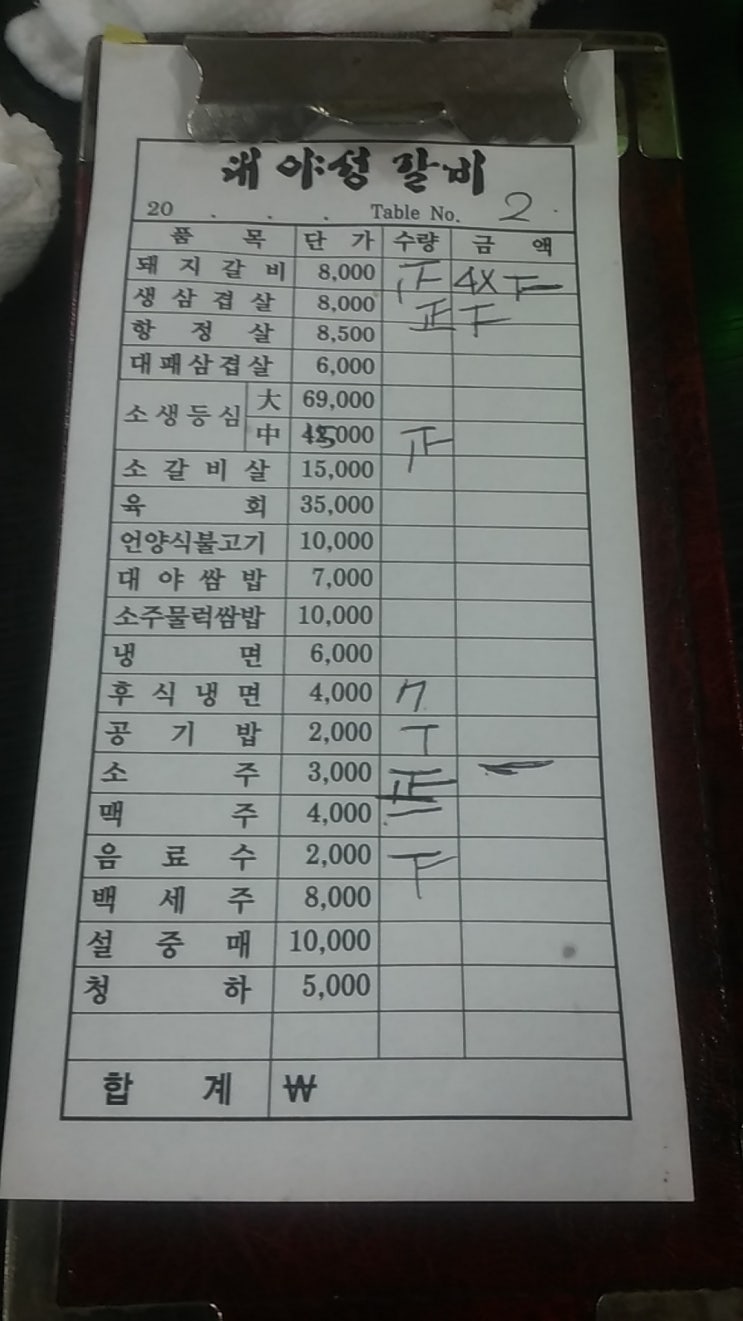 대야성갈비
20 . . . Table No. 2
품 목 단 가 수량 금 액
돼 지 갈 비 8,000 正 4X 下
생 삼 겹 살 8,000 正 下
항 정 살 8,500
대패삼겹살 6,000
소생등심 大 69,000
中 000 正
소 갈 비 살 15,000
육 회 35,000
언양식불고기 10,000
대 야 쌈 밥 7,000
소주물럭쌈밥 10,000
냉 면 6,000
후 식 냉 면 4,000
공 기 밥 2,000 T
소 주 3,000 正 一
맥 주 4,000 二
음 료 수 2,000 下
백 세 주 8,000
설 중 매 10,000
청 하 5,000
합 계 ₩